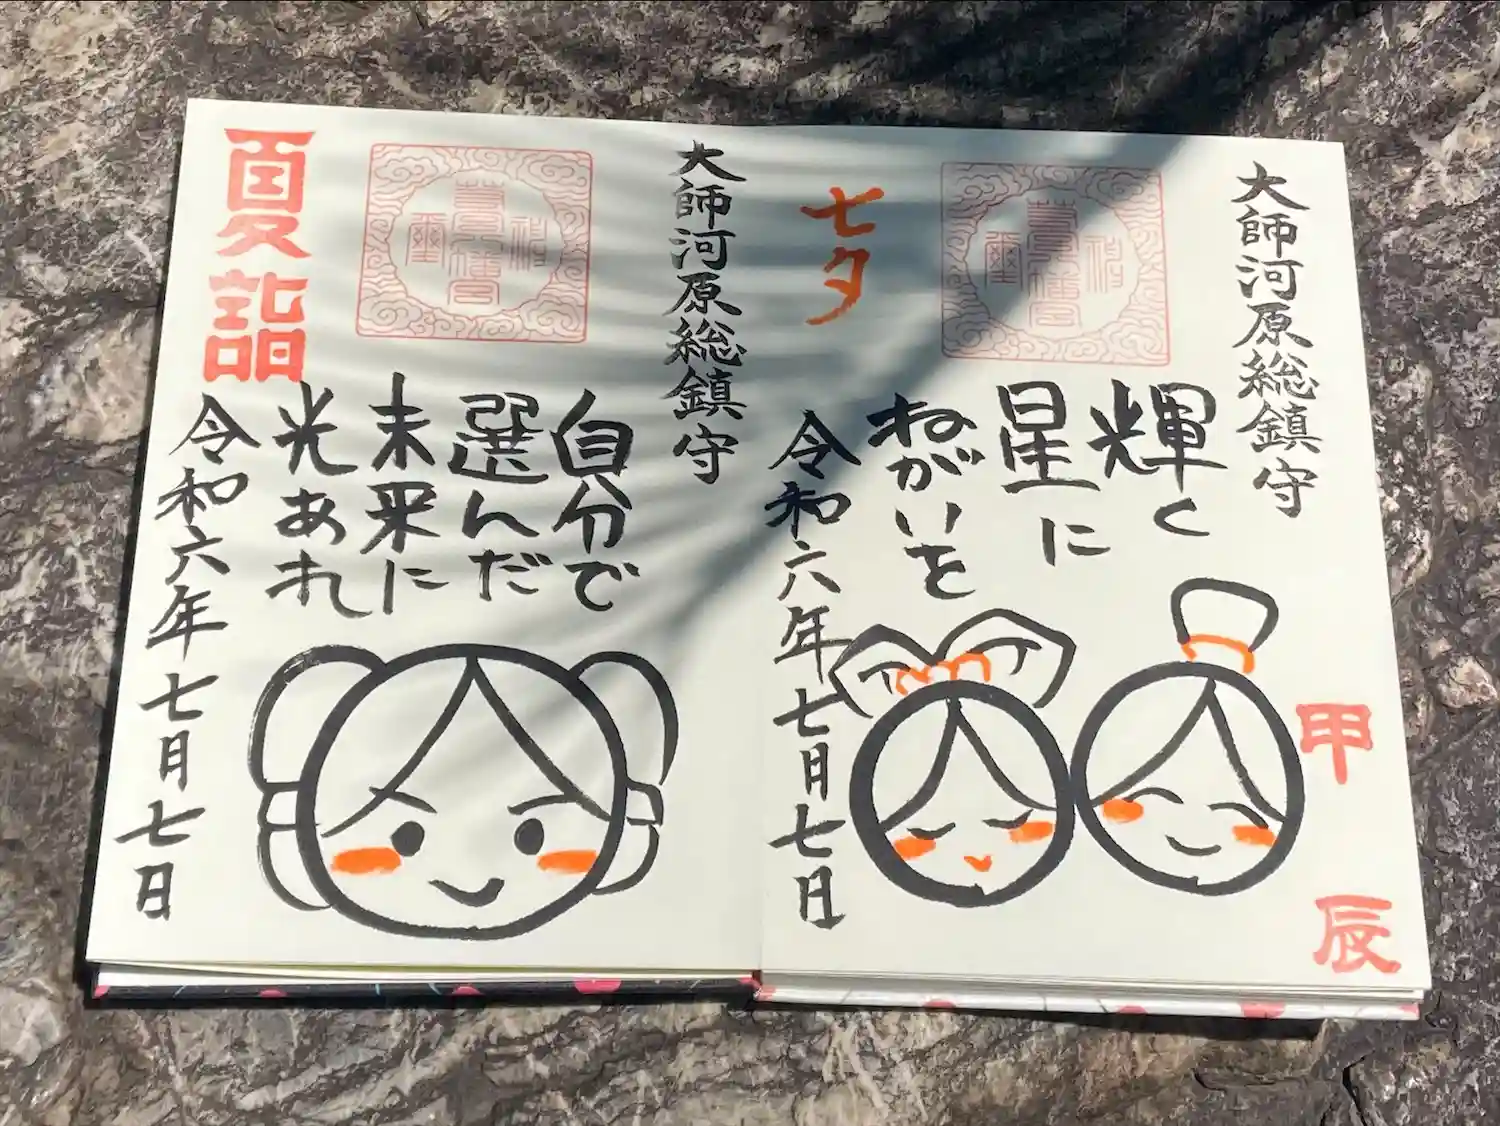 大師河原総鎮守
輝く
星に
ねがいを
七夕
令和六年七月七日
甲辰
大師河原総鎮守
自分で
選んだ
未来に
光あれ
夏詣
令和六年七月七日